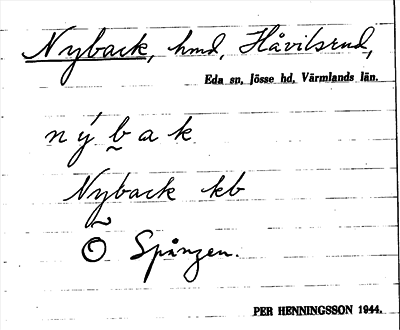 Nyback, hmd, Håvilsrud,
Eda sn, Jösse hd, Värmlands län.
nýb̰ak
Nyback kb
Spången.
PER HENNINGSSON 1944.